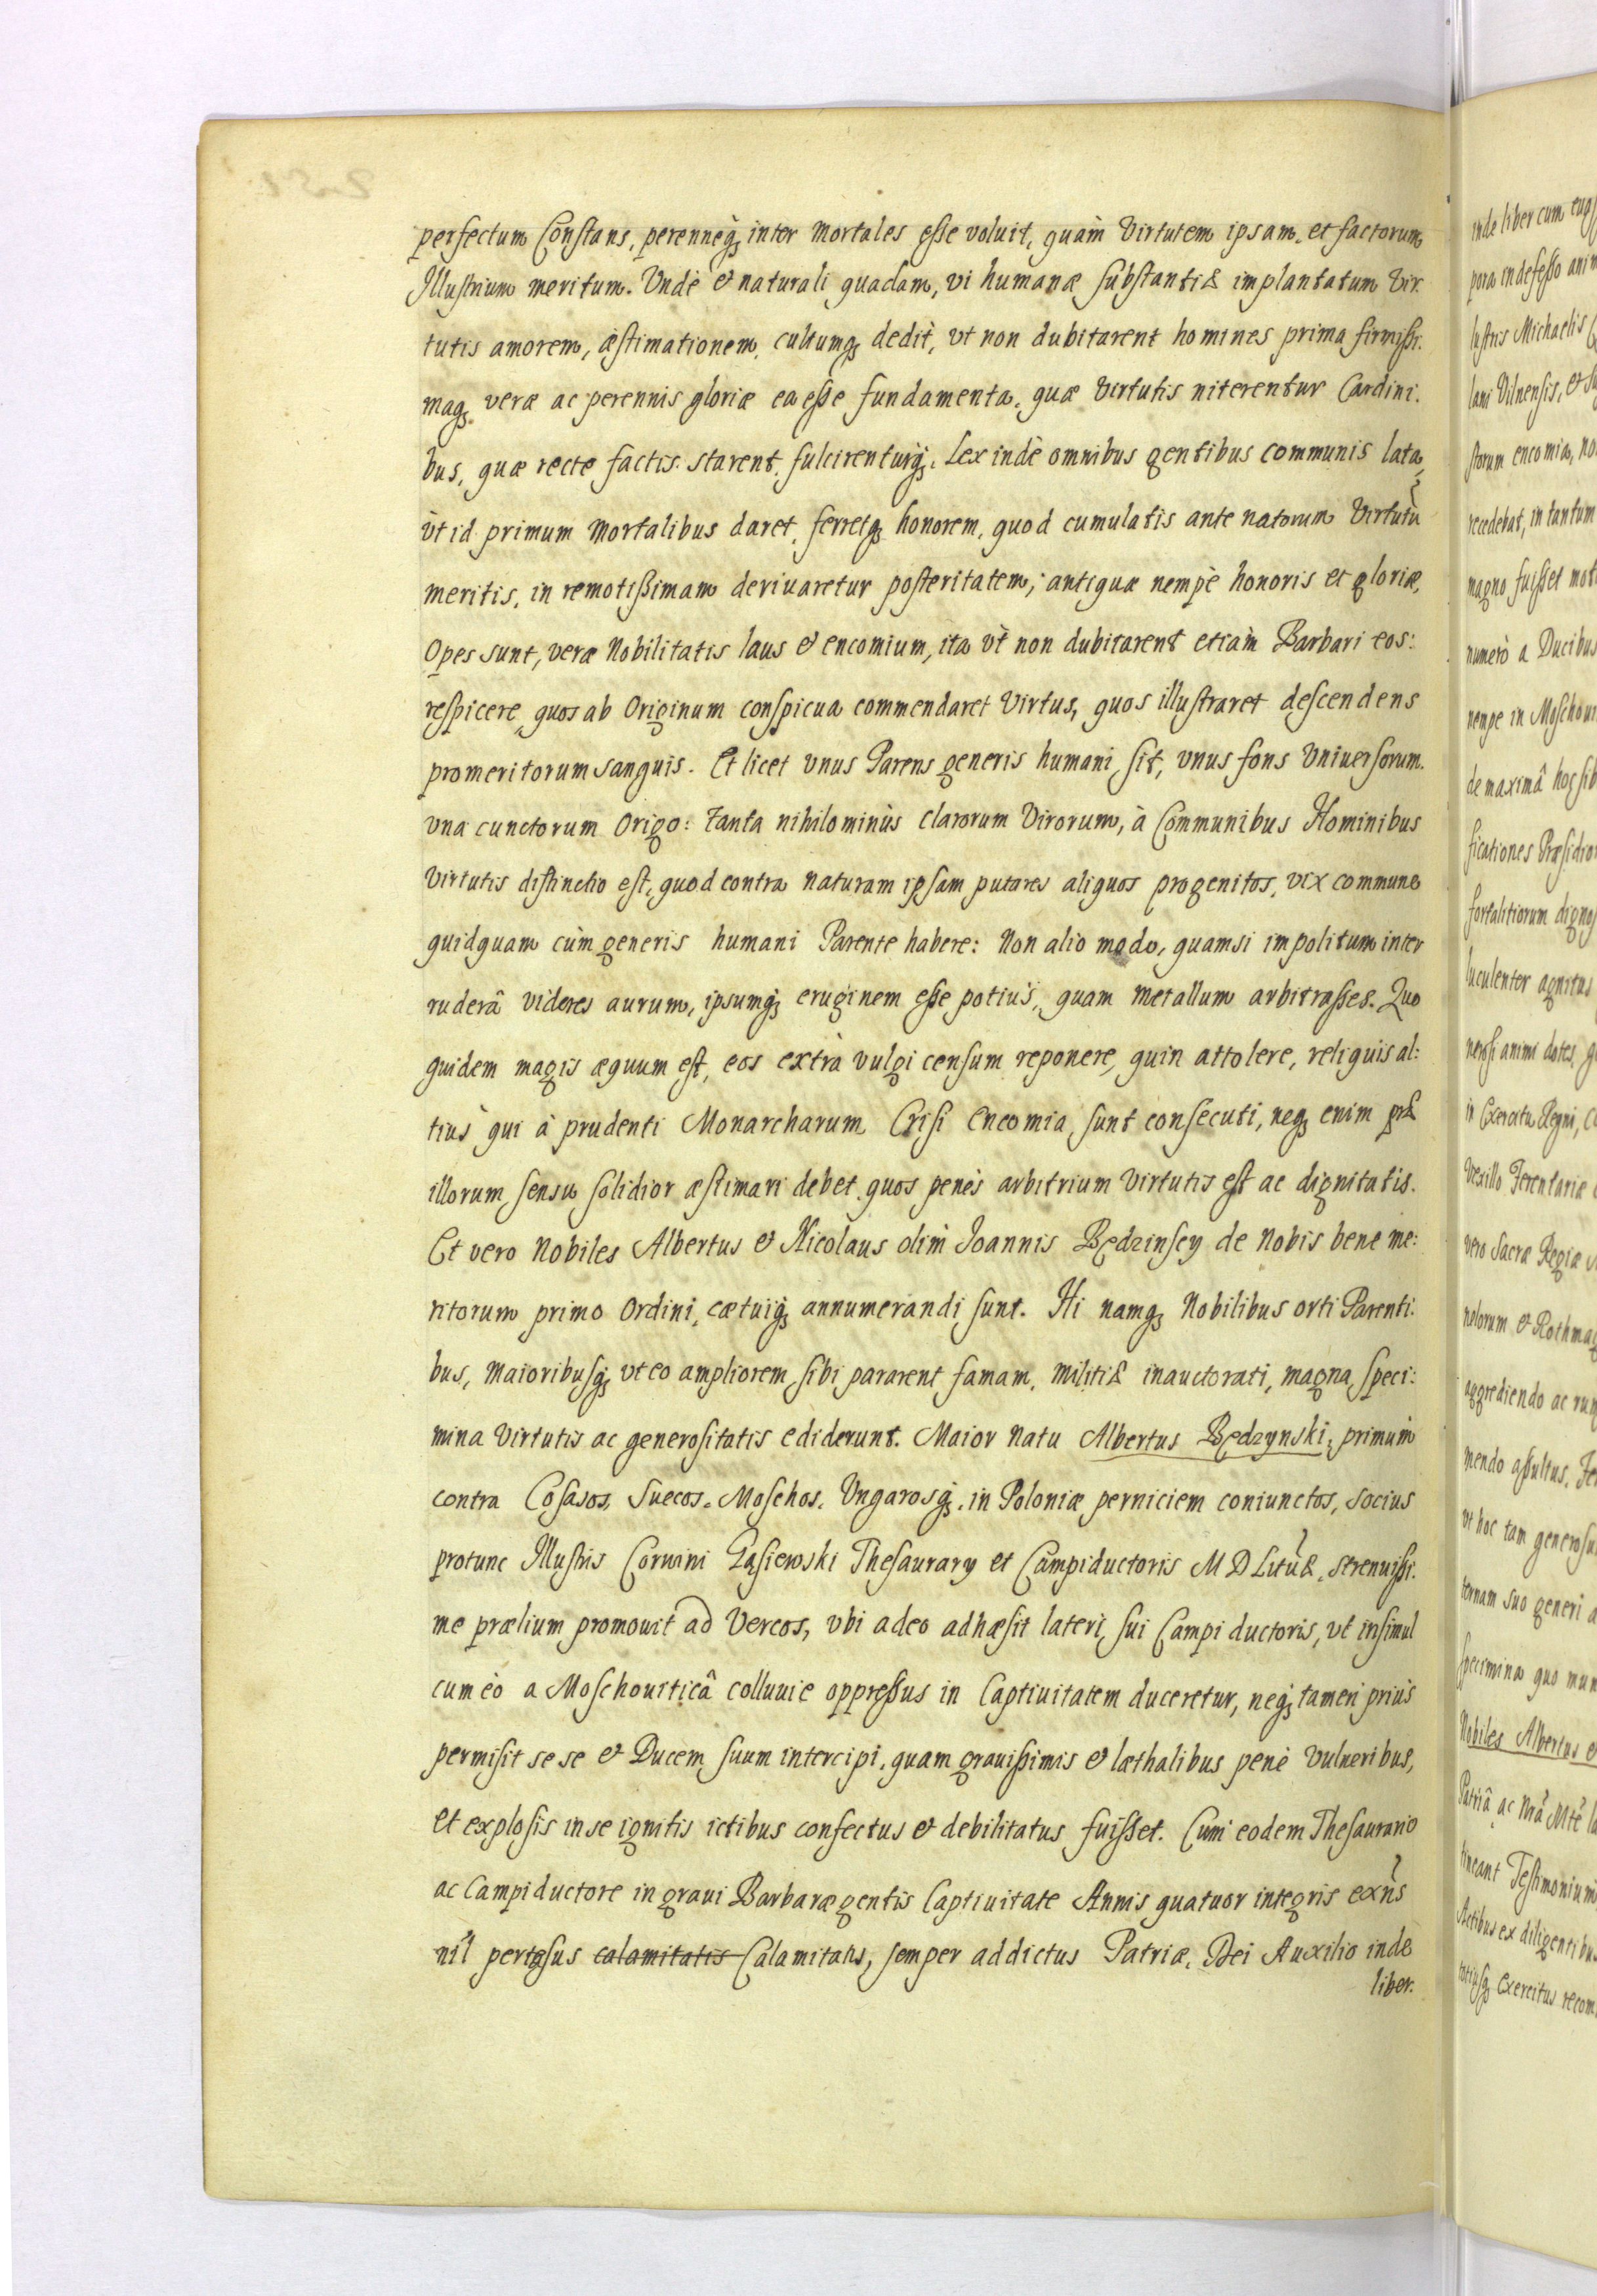 perfectum Constans, perenneq; inter Mortales esse voluit, quàm Virtutem ipsam, et factorum
Illustrium meritum. Undè & naturali quadam, vi humanæ substantiæ implantatum Vir.
tutis amorem, æstimationem, cultumq; dedit, vt non dubitarent homines prima firmissi.
maq; veræ ac perennis gloriæ ea esse fundamenta, quæ Virtutis niterentur Cardini.
bus, quæ recte factis starent, fulcirenturq;. Lex indè omnibus gentibus communis lata,
vt id primum Mortalibus daret, ferretq; honorem, quod cumulatis ante natorum Virtutũ
meritis, in remotissimam deriuaretur posteritatem; antiquæ nempè honoris et gloriæ,
Opes sunt, veræ Nobilitatis laus & encomium, ita vt non dubitarent etiàm Barbari eos:
respicere, quos ab Originum conspicua commendaret Virtus, quos illustraret descendens
promeritorum sanguis. Et licet vnus Parens generis humani sit, vnus fons Vniuersorum.
vna cunctorum Origo: tanta nihilominùs clarorum Virorum, à Communibus Hominibus
Virtutis distinctio est, quod contra naturam ipsam putares aliquos progenitos, vix commune
quidquam cùm generis humani Parente habere: Non alio modo, quamsi impolitum inter
ruderâ videres aurum, ipsumq; eruginem esse potiùs, quam Metallum arbitrasses. Quo
quidem magis æquum est, eos extrà vulgi censum reponere, quin attolere, reliquis al:
tiùs qui à prudenti Monarcharum Crisi Encomia sunt consecuti, neq; enim præ
illorum sensu solidior æstimari debet, quos penès arbitrium Virtutis est ac dignitatis.
Et vero Nobiles Albertus & Nicolaus olim Ioannis Będzinscy de Nobis bene me:
ritorum primo Ordini, cætuiq; annumerandi sunt. Hi namq; Nobilibus orti Parenti.
bus, Maioribusq; vt eo ampliorem sibi pararent famam, Militiæ inauctorati, magna speci:
mina Virtutis ac generositatis ediderunt. Maior Natu Albertus Będzynski, primùm
contra Cosasos, Suecos, Moschos, Vngarosq;. in Poloniæ perniciem coniunctos, socius
protunc Illustris Corwini Gąsiewski Thesaurary et Campiductoris M D Litũæ, strenuissi.
me prælium promouit ad Vercos, vbi adeo adhæsit lateri sui Campi ductoris, vt insimul
cum eò a Moschouiticâ colluuie oppressus in Captiuitatem duceretur, neq; tamen priùs
permisit se se & Ducem suum intercipi, quam grauissimis & læthalibus penè Vulneribus,
et explosis in se ignitis ictibus confectus & debilitatus fuisset. Cum eodem Thesaurario
ac Campi ductore in graui Barbaræ gentis Captiuitate Annis quatuor integris exñs
nil pertæsus calamitatis Calamitatis, semper addictus Patriæ, Dei Auxilio inde
liber.